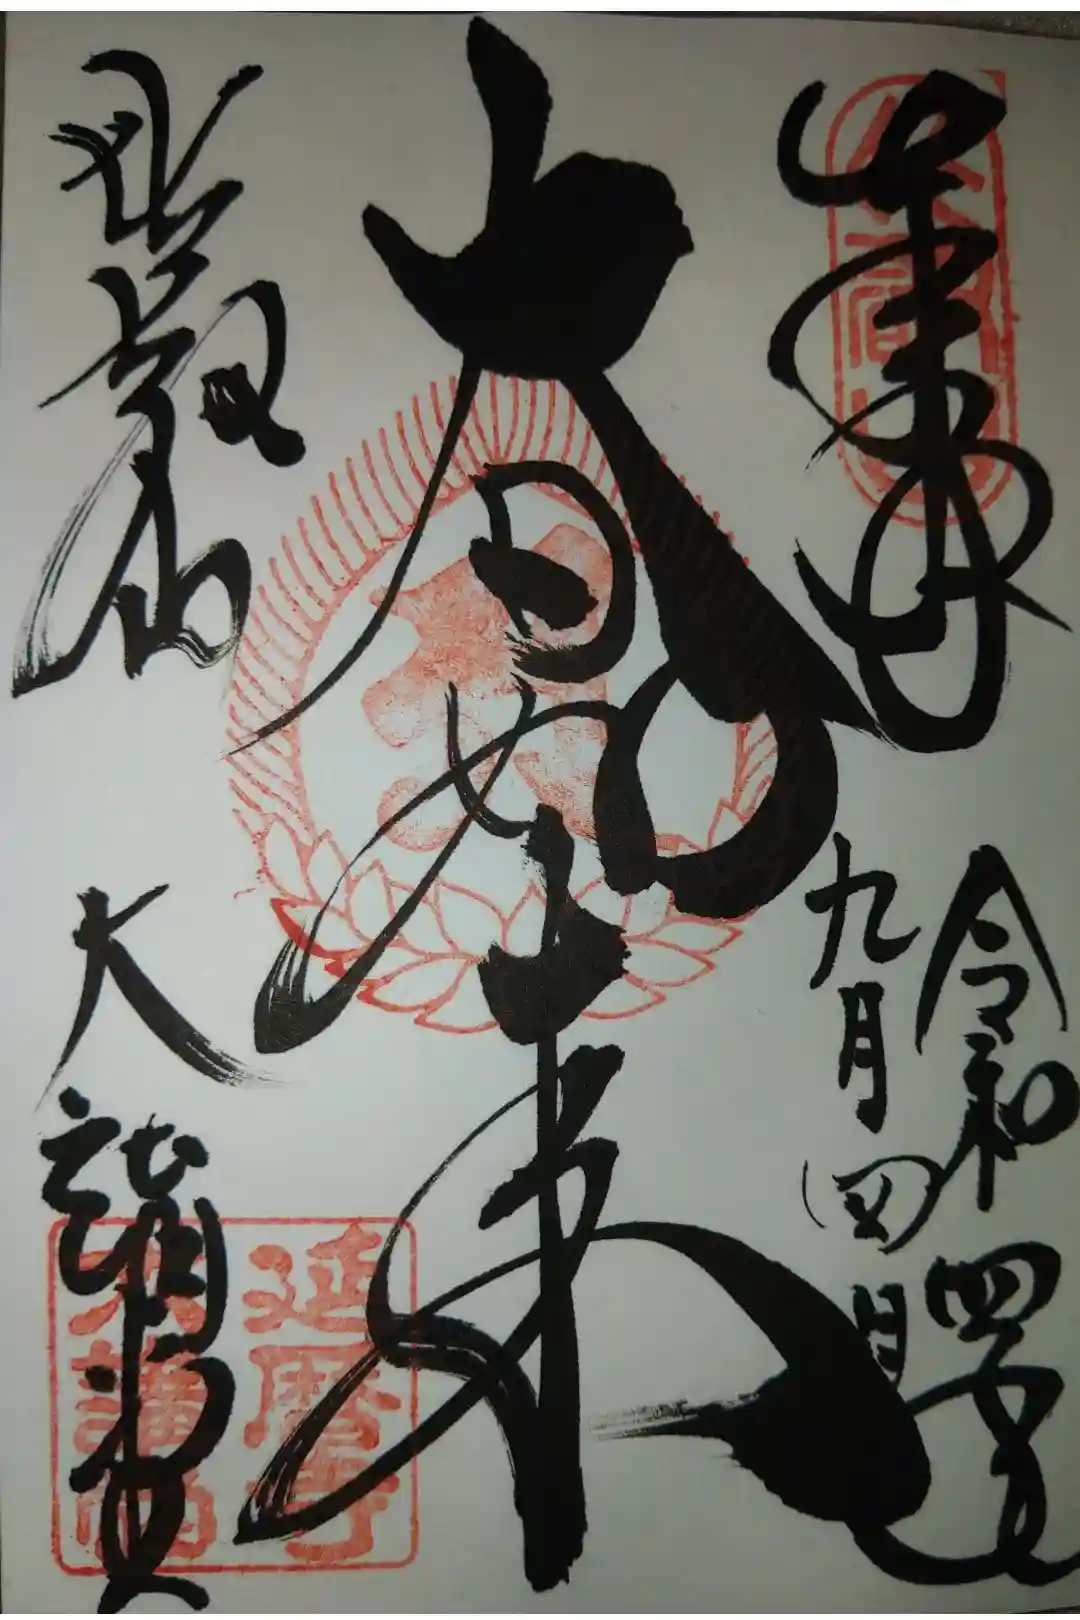 奉拝
令和四年
九月四日
大日如来
比叡山
大講堂
延暦寺
大講堂